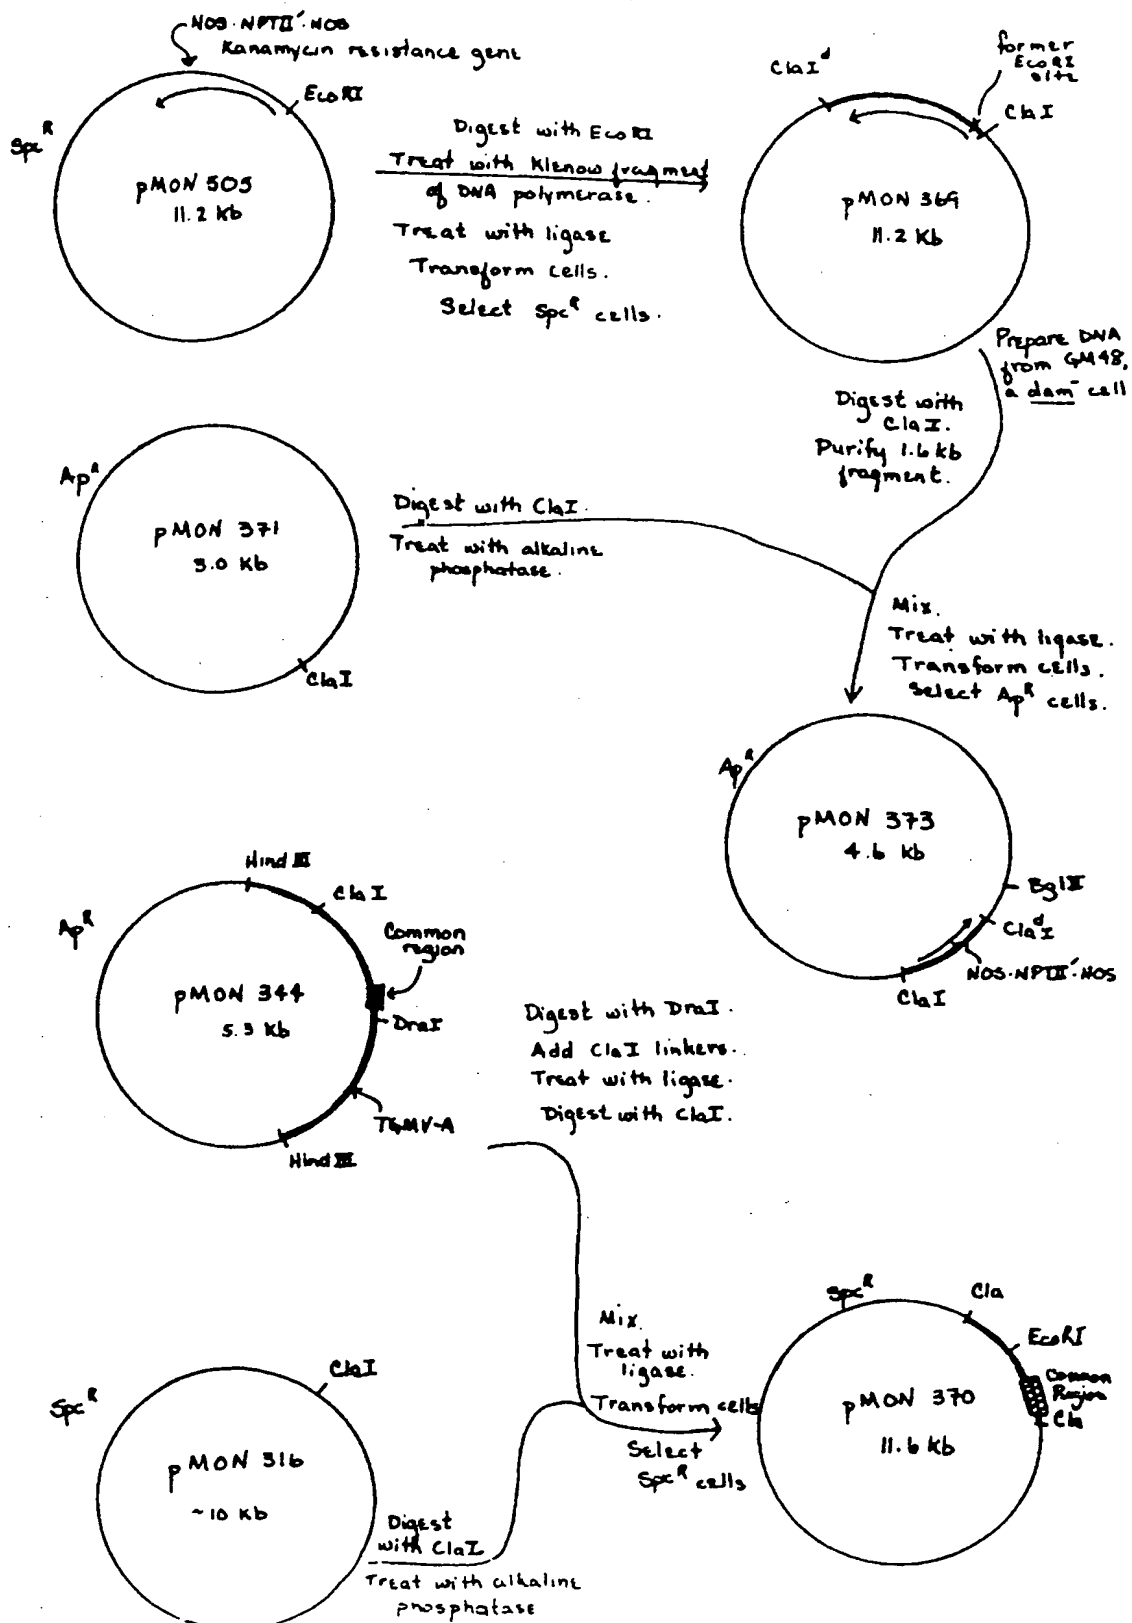 NOS·NPTII'·NOS
Kanamycin resistance gene
EcoRI
Spc^R
pMON 505
11.2 Kb
Digest with EcoRI
Treat with Klenow fragment
of DNA polymerase.
Treat with ligase
Transform cells.
Select Spc^R cells.
ClaI^d
former
EcoRI
site
ClaI
pMON 369
11.2 Kb
Prepare DNA
from GM48,
a dam^- cell
Digest with
ClaI.
Purify 1.6 kb
fragment.
Ap^R
pMON 371
3.0 Kb
ClaI
Digest with ClaI.
Treat with alkaline
phosphatase.
Mix.
Treat with ligase.
Transform cells.
Select Ap^R cells.
Ap^R
pMON 373
4.6 Kb
BglII
Cla^dI
NOS·NPTII'·NOS
ClaI
Hind III
ClaI
Ap^R
Common
region
pMON 344
5.3 Kb
DraI
TGMV-A
Hind III
Digest with DraI.
Add ClaI linkers.
Treat with ligase.
Digest with ClaI.
Spc^R
ClaI
pMON 316
~10 Kb
Digest
with ClaI
Treat with alkaline
phosphatase
Mix.
Treat with
ligase.
Transform cells
Select
Spc^R cells
Spc^R
Cla
EcoRI
Common
Region
Cla
pMON 370
11.6 Kb